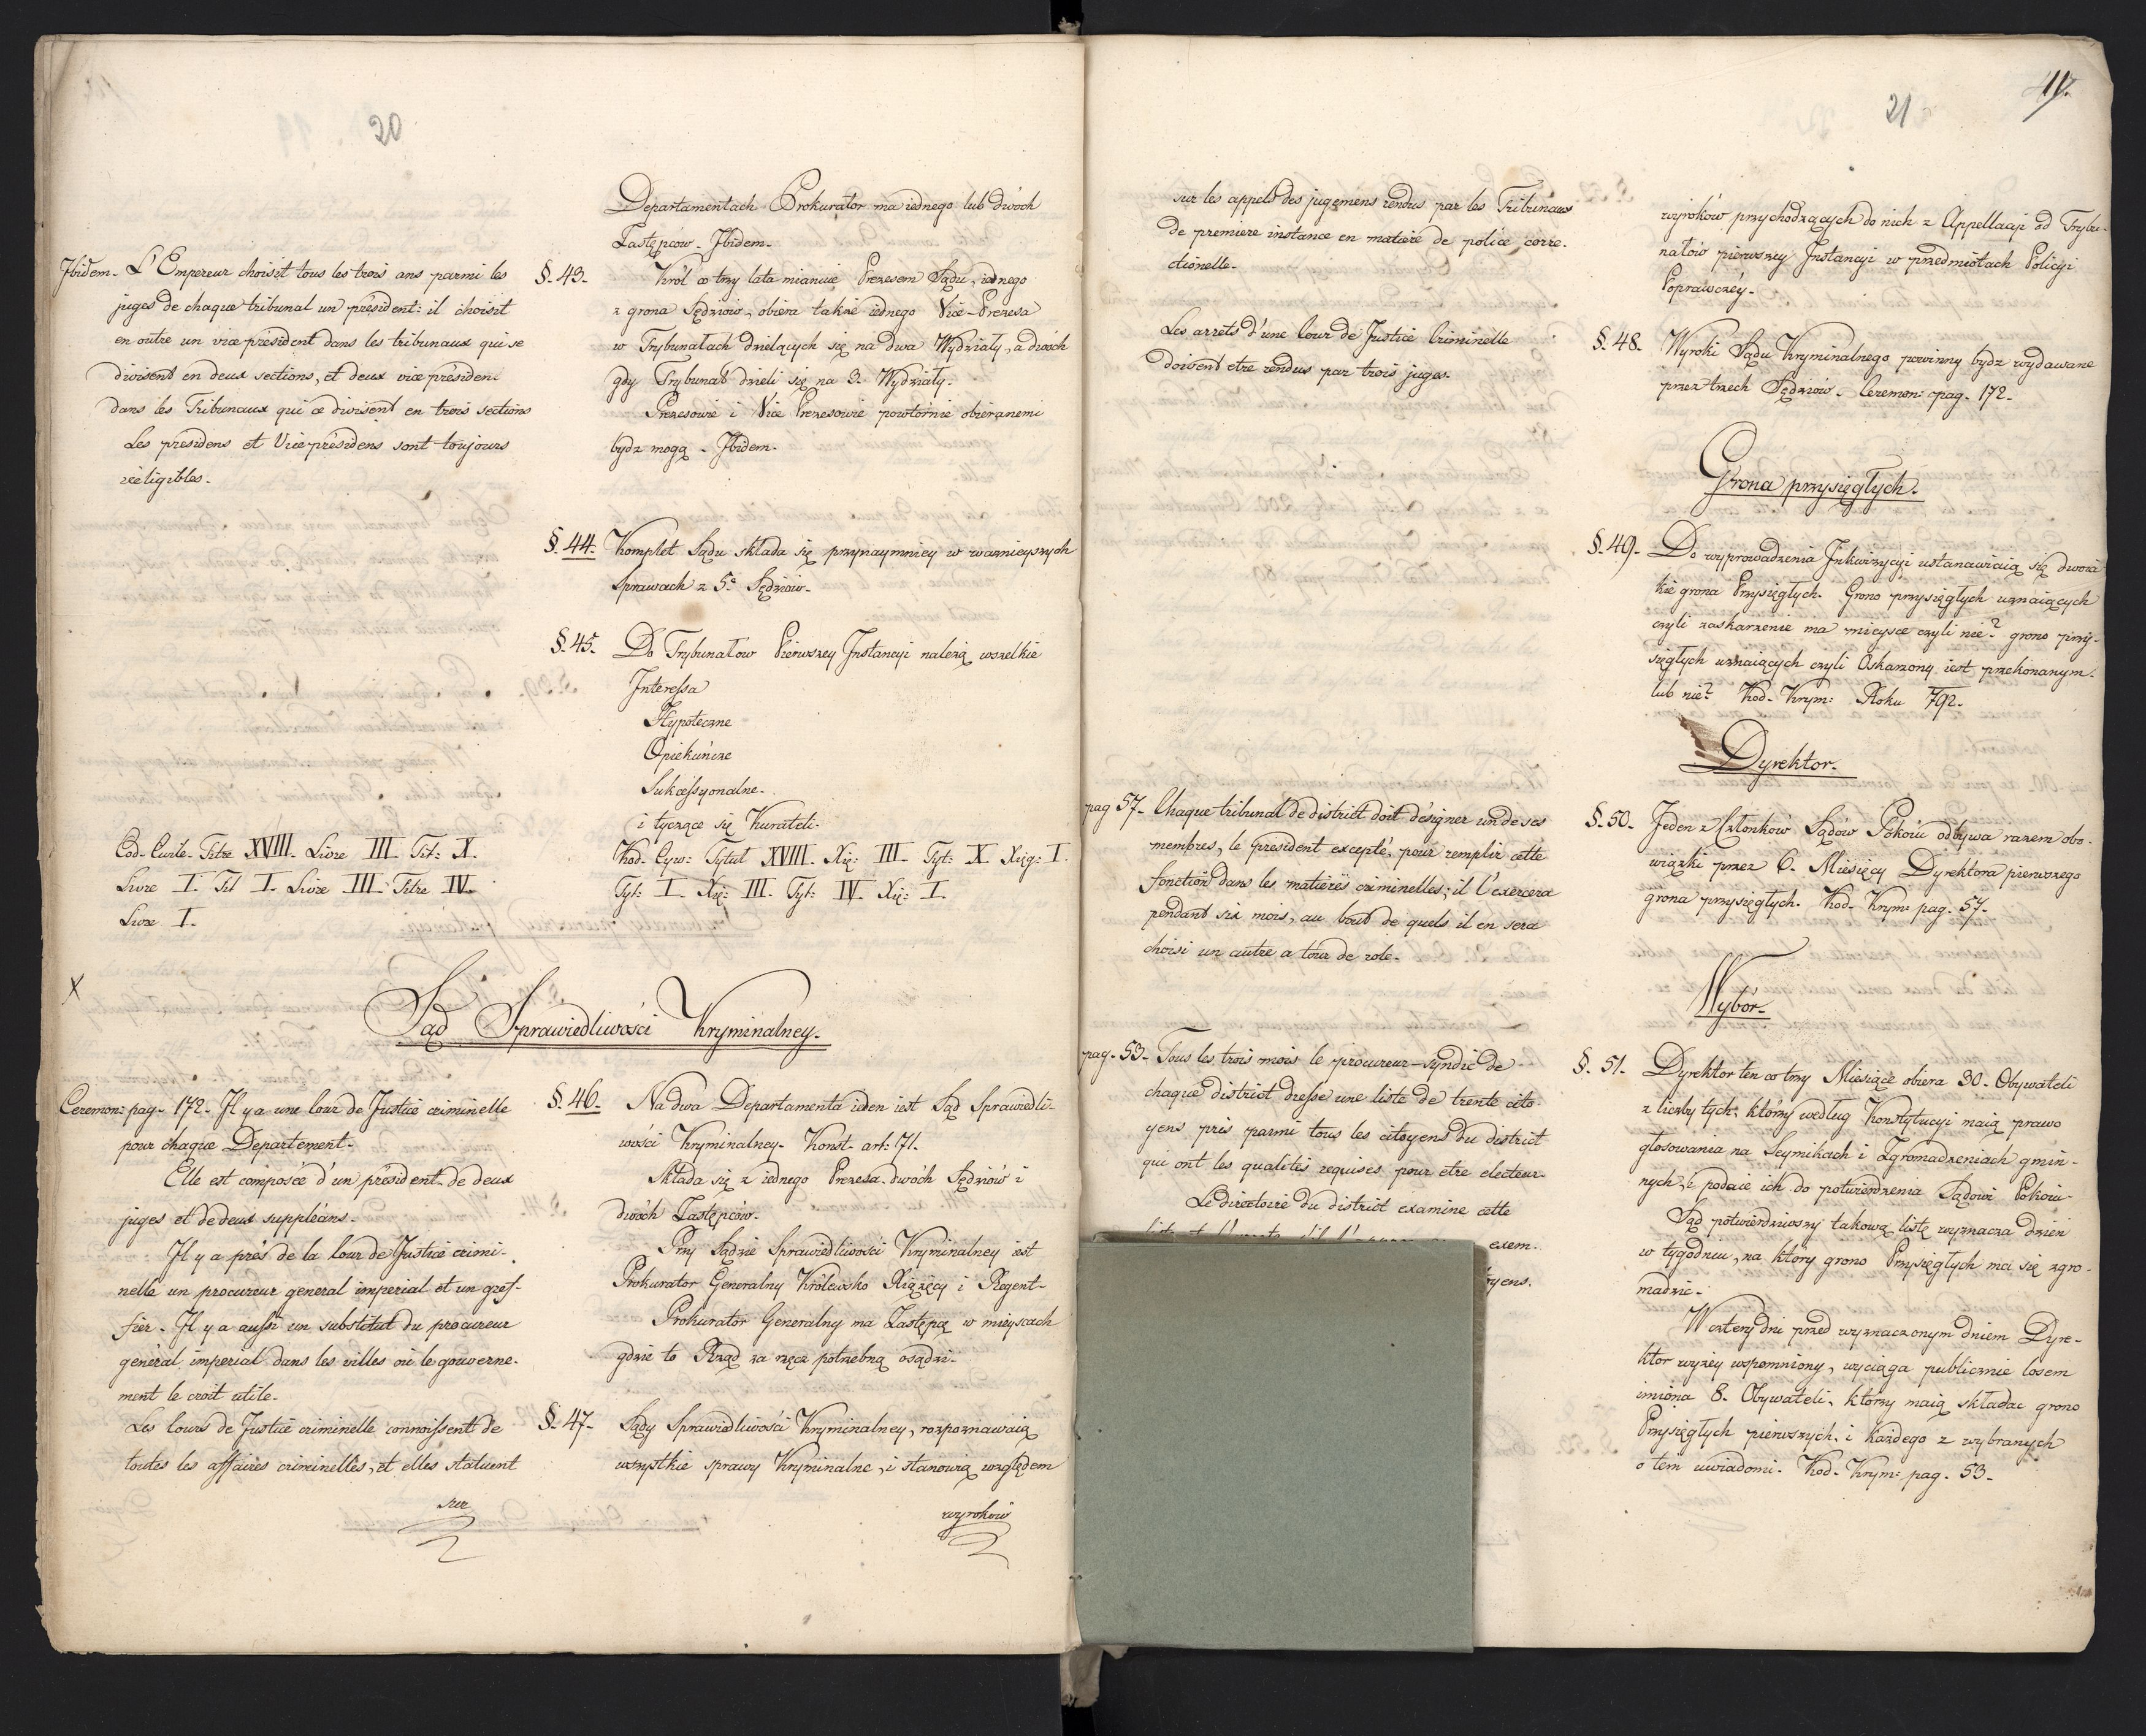 20
Ibidem. L'Empereur choisit tous les trois ans parmi les
juges de chaque tribunal un président: il choisit
en outre un vice président dans les tribunaux qui se
divisent en deux sections, et deux vice présiden.
dans les Tribunaux qui se divisent en trois sections
Les presidens et Vice présidens sont toujours
réeligibles.
Cod. Civile. Titre XVIII. Livre III. Tit: X.
Livre I. Tit I. Livre III. Titre IV.
Livre I.
Departamentach Prokurator ma iednego lub dwóch
Zastępców. Ibidem.
§. 43. Król co trzy lata mianuie Prezesem Sądu, iednego
z grona Sędziów, obiera także iednego Vice-Prezesa
w Trybunałach dzielących się na dwa Wydziały, a dwóch
gdy Trybunał dzieli się na 3. Wydziały.
Prezesowie i Vice Prezesowie powtórnie obieranemi
bydz mogą. Ibidem.
§. 44. Komplet Sądu składa się przynaymniey w ważnieyszych
Sprawach z 5. Sędziów.
§. 45. Do Trybunałów Pierwszey Instancyi należą wszelkie
Interessa
Hypoteczne
Opiekuńcze
Sukcessyonalne.
i tyczące się Kurateli.
Kod. Cyw: Tytuł XVIII. Xię: III. Tyt: X Xięg: I.
Tyt: I. Xię: III. Tyt: IV. Xię: I.
X
Sąd Sprawiedliwości Kryminalney.
Ceremon: pag. 172. Il y a une Cour de Justice criminelle
pour chaque Departement.
Elle est composée d'un président de deux
juges et de deux suppléans.
Il y a près de la Cour de Justice crimi-
nelle un procureur general imperial et un gref-
fier. Il y a aussi un substitut du procureur
genéral imperial dans les villes où le gouverne-
ment le croit utile.
Les Cours de Justice criminelle connoissent de
toutes les affaires criminelles, et elles statuent
sur
§. 46. Na dwa Departamenta ieden iest Sąd Sprawiedli-
wości Kryminalney. Konst. art: 71.
Składa się z iednego Prezesa dwóch Sędziów i
dwóch Zastępców.
Przy Sądzie Sprawiedliwości Kryminalney iest
Prokurator Generalny Królewsko Xiążęcy i Regent.
Prokurator Generalny ma Zastępcę w mieyscach
gdzie to Rząd za rzecz potrzebną osądzi.
§. 47. Sądy Sprawiedliwości Kryminalney, rozpoznawaią
wszystkie sprawy Kryminalne, i stanowią względem
wyroków
21
sur les appels des jugemens rendus par les Tribunaux
de premiere instance en matière de police corre-
ctionelle.
Les arrets d'une Cour de Justice Criminelle
doivent etre rendus par trois juges.
pag 57. Chaque tribunal de district doit désigner un de ses
membres, le president excepté, pour remplir cette
fonction dans les matières criminelles; il l'exercera
pendant six mois, au bout de quels il en sera
choisi un autre a tour de role.
pag. 53. Tous les trois mois le procureur-syndic de
chaque district dresse une liste de trente cito-
yens pris parmi tous les citoyens du district
qui ont les qualités requises pour etre electeur.
Le directoire du district examine cette
exem.
oyens.
wyroków przychodzących do nich z Appellacyi od Trybu-
nałów pierwszey Instancyi w przedmiotach Policyi
Poprawczéy.
§. 48. Wyroki Sądu Kryminalnego powinny bydz wydawane
przez trzech Sędziów. Ceremon: pag. 172.
Grona przysięgłych.
§. 49. Do wyprowadzenia Inkwizycyi ustanawiaią się dwoia-
kie grona Przysięgłych. Grono przysięgłych uznaiących
czyli zaskarzenie ma mieysce czyli nie? grono przy-
sięgłych uznaiących czyli Oskarzony iest przekonanym.
lub nie? Kod. Krym: Roku 792.
Dyrektor.
§. 50. Jeden z Członków Sądów Pokoiu odbywa razem obo-
wiązki przez 6. Miesięcy Dyrektora pierwszego
grona przysięgłych. Kod. Krym: pag. 57.
Wybór.
§. 51. Dyrektor ten co trzy Miesiące obiera 30. Obywateli
z liczby tych, którzy według Konstytucyi maią prawo
głosowania na Seymikach i Zgromadzeniach gmin-
nych, i podaie ich do potwierdzenia Sądowi Pokoiu.
Sąd potwierdziwszy takową listę wyznacza dzień
w tygodniu, na który grono Przysięgłych ma się zgro-
madzić.
W cztery dni przed wyznaczonym dniem Dyre-
ktor wyżey wspomniony, wyciąga publicznie losem
imiona 8. Obywateli, którzy maią składać grono
Przysięgłych pierwszych, i każdego z wybranych
o tem uwiadomi. Kod. Krym: pag. 53.